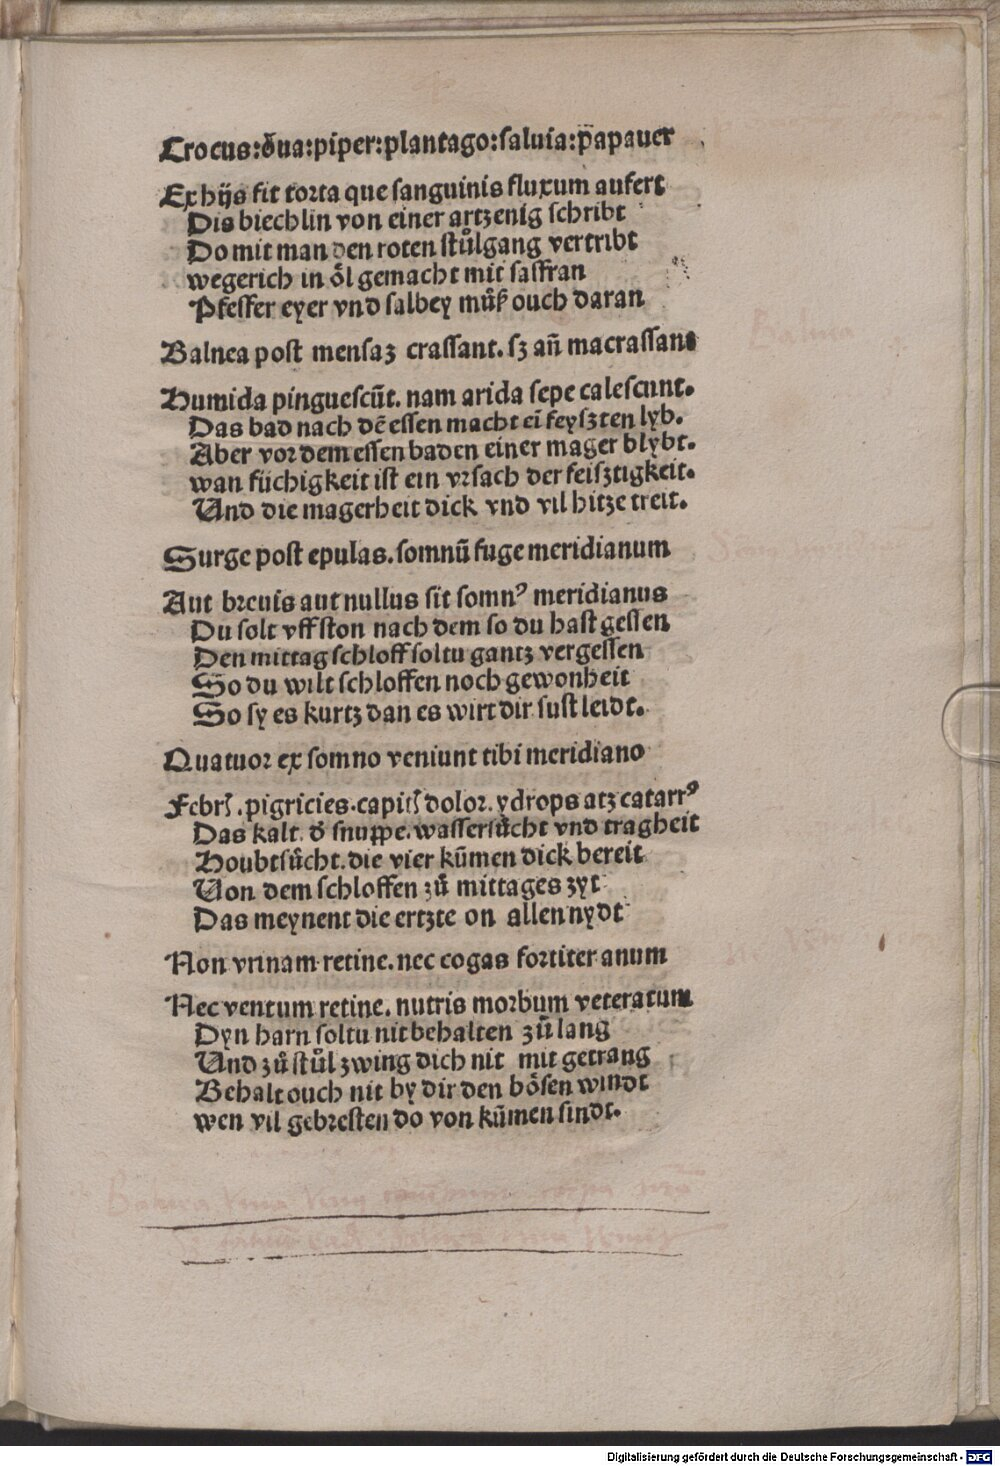 Crocus:ōua:piper:plantago:saluia:papauer
Ex hijs fit torta que sanguinis fluxum aufert
Dis biechlin von einer artzenig schribt
Do mit man den roten stůlgang vertribt
wegerich in öl gemacht mit saffran
Pfeffer eyer vnd salbey můß ouch daran
Balnea post mensaz crassant. sz añ macrassant
Humida pinguescūt. nam arida sepe calescunt.
Das bad nach dē essen macht eī feyszten lyb.
Aber vor dem essen baden einer mager blybt.
wan füchigkeit ist ein vrsach der feisztigkeit.
Und die magerheit dick vnd vil hitze treit.
Surge post epulas. somnū fuge meridianum
Aut breuis aut nullus sit somnꝰ meridianus
Du solt vff ston nach dem so du hast gessen
Den mittag schloff soltu gantz vergessen
So du wilt schloffen noch gewonheit
So sy es kurtz dan es wirt dir sust leidt.
Quatuor ex somno veniunt tibi meridiano
Febrꝭ. pigricies. capitꝭ dolor. ydrops atz catarrꝰ
Das kalt. đ snuppe. wassersůcht vnd tragheit
Houbtsůcht. die vier kūmen dick bereit
Von dem schloffen zů mittages zyt
Das meynent die ertzte on allen nydt
Non vrinam retine. nec cogas fortiter anum
Nec ventum retine. nutris morbum veteratum
Dyn harn soltu nit behalten zů lang
Und zů stůl zwing dich nit mit getrang
Behalt ouch nit by dir den bösen windt
wen vil gebresten do von kūmen sindt.
Balnea
Balnea vina
Digitalisierung gefördert durch die Deutsche Forschungsgemeinschaft - DFG